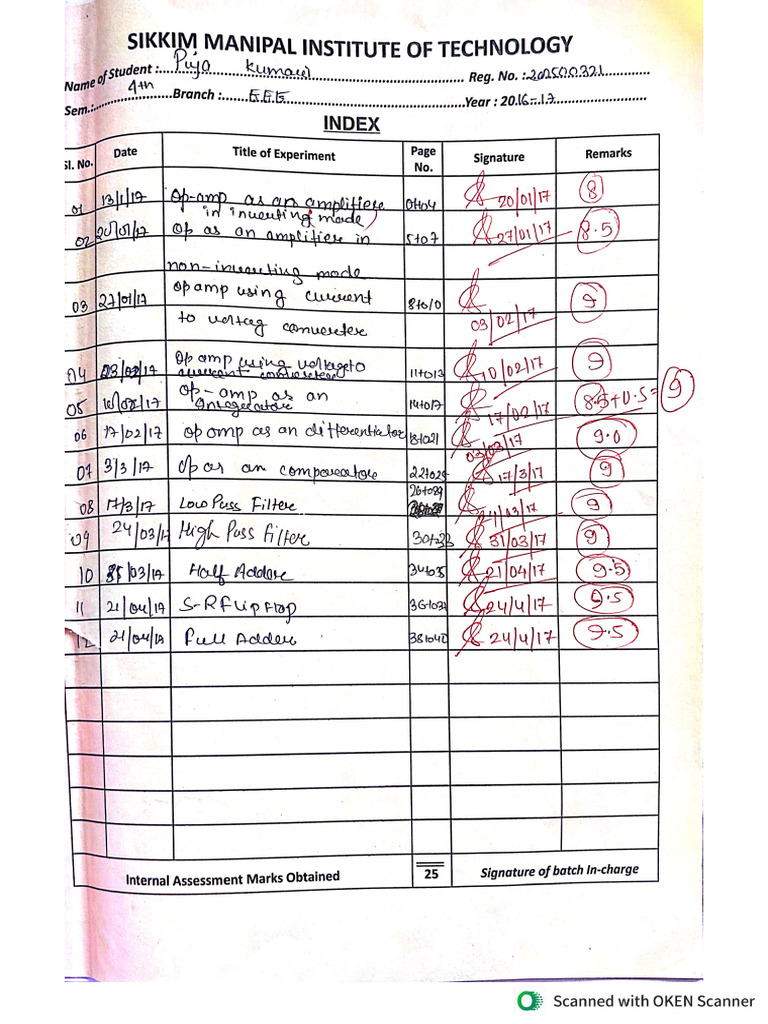 SIKKIM MANIPAL INSTITUTE OF TECHNOLOGY
Name of Student : Puja Kumari Reg. No. :
Sem.: 4th Branch : E.E.E Year : 2016-17
INDEX
Sl. No. Date Title of Experiment Page No. Signature Remarks
01 13/1/17 Op-amp as an amplifier in inverting mode 1to4 20/01/17 8
02 20/01/17 Op as an amplifier in 5to7 27/01/17 8.5
non-inverting mode
03 27/01/17 op amp using current 8to10 9
to voltag converter 03/02/17
04 03/02/17 Op amp using voltage to current converter 11to13 10/02/17 9
05 10/02/17 Op-amp as an Integrator 14to17 17/02/17 8.5+0.5= 9
06 17/02/17 op amp as an differentiator 18to21 03/03/17 9.0
07 3/3/17 Op as an comparator 22to25 17/3/17 9
08 17/3/17 Low Pass Filter 26to29 9
09 24/03/17 High Pass Filter 30to33 31/03/17 9
10 31/03/17 Half Adder 34to35 21/04/17 9.5
11 21/04/17 S-R Flip Flop 36to37 24/4/17 9.5
12 21/04/17 Full Adder 38to40 24/4/17 9.5
Internal Assessment Marks Obtained 25 Signature of batch In-charge
Scanned with OKEN Scanner